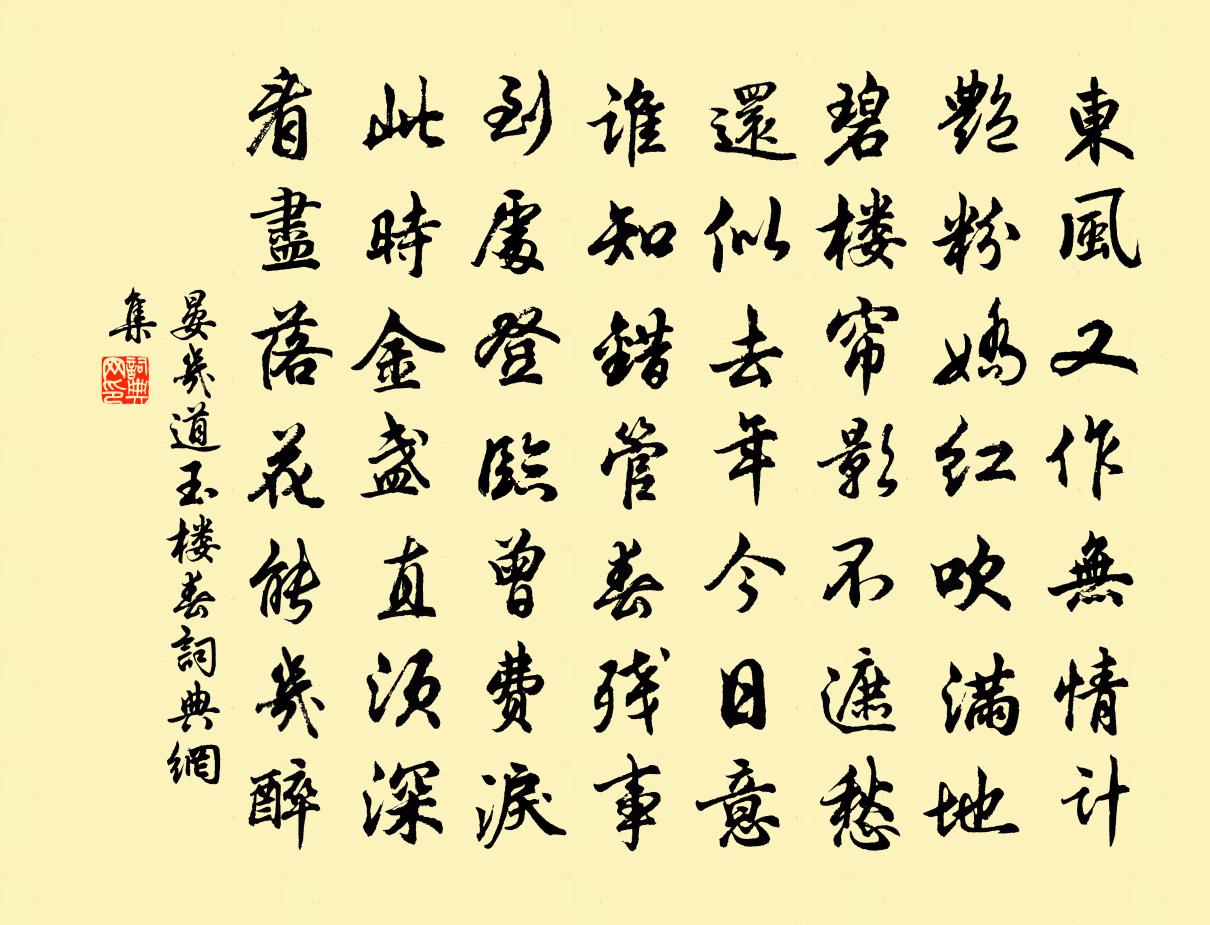 東風又作無情计
艶粉娇红吹满地
碧楼帘影不遮愁
還似去年今日意
谁知錯管春残事
到處登臨曾費淚
此時金盏直须深
看盡落花能幾醉
晏幾道玉楼春詞典網
集
詞典網印